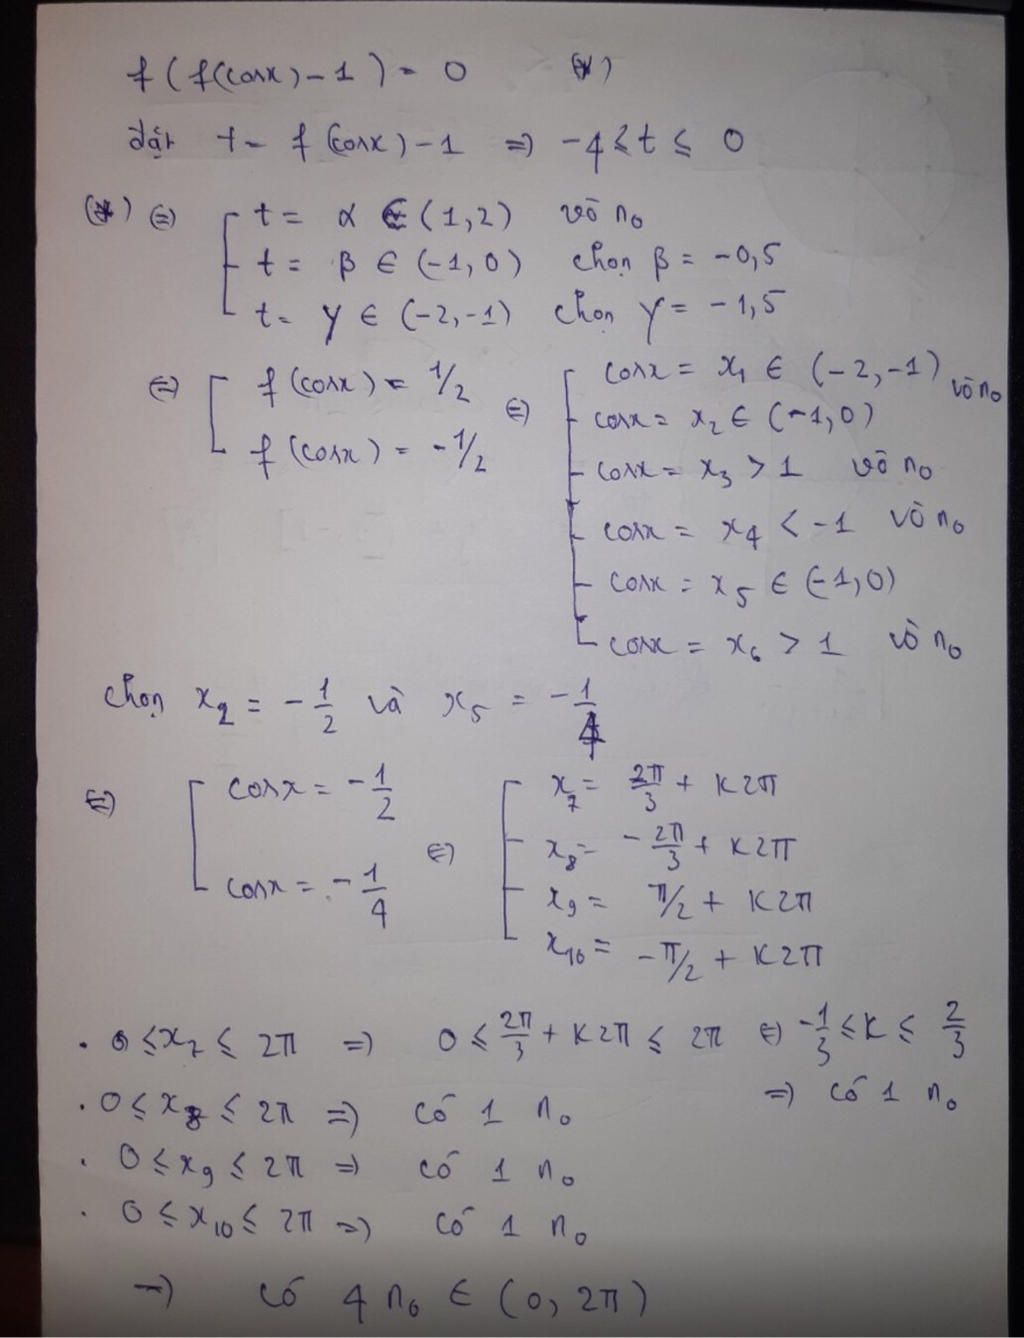 f(f(cosx)-1) = 0 (*)
đặt t = f(cosx)-1 => -4 ≤ t ≤ 0
(*) <=> [ t = α ∈ (1,2) vô n₀
t = β ∈ (-1,0) chọn β = -0,5
t = γ ∈ (-2,-1) chọn γ = -1,5
<=> [ f(cosx) = 1/2
f(cosx) = -1/2
<=> [ cosx = x₁ ∈ (-2,-1) vô n₀
cosx = x₂ ∈ (-1,0)
cosx = x₃ > 1 vô n₀
cosx = x₄ < -1 vô n₀
cosx = x₅ ∈ (-1,0)
cosx = x₆ > 1 vô n₀
chọn x₂ = -1/2 và x₅ = -1/4
<=> [ cosx = -1/2
cosx = -1/4
<=> [ x₇ = 2π/3 + K2π
x₈ = -2π/3 + K2π
x₉ = π/2 + K2π
x₁₀ = -π/2 + K2π
. 0 ≤ x₇ ≤ 2π => 0 ≤ 2π/3 + K2π ≤ 2π <=> -1/3 ≤ K ≤ 2/3
=> có 1 n₀
. 0 ≤ x₈ ≤ 2π => có 1 n₀
. 0 ≤ x₉ ≤ 2π => có 1 n₀
. 0 ≤ x₁₀ ≤ 2π => có 1 n₀
=> có 4 n₀ ∈ (0, 2π)